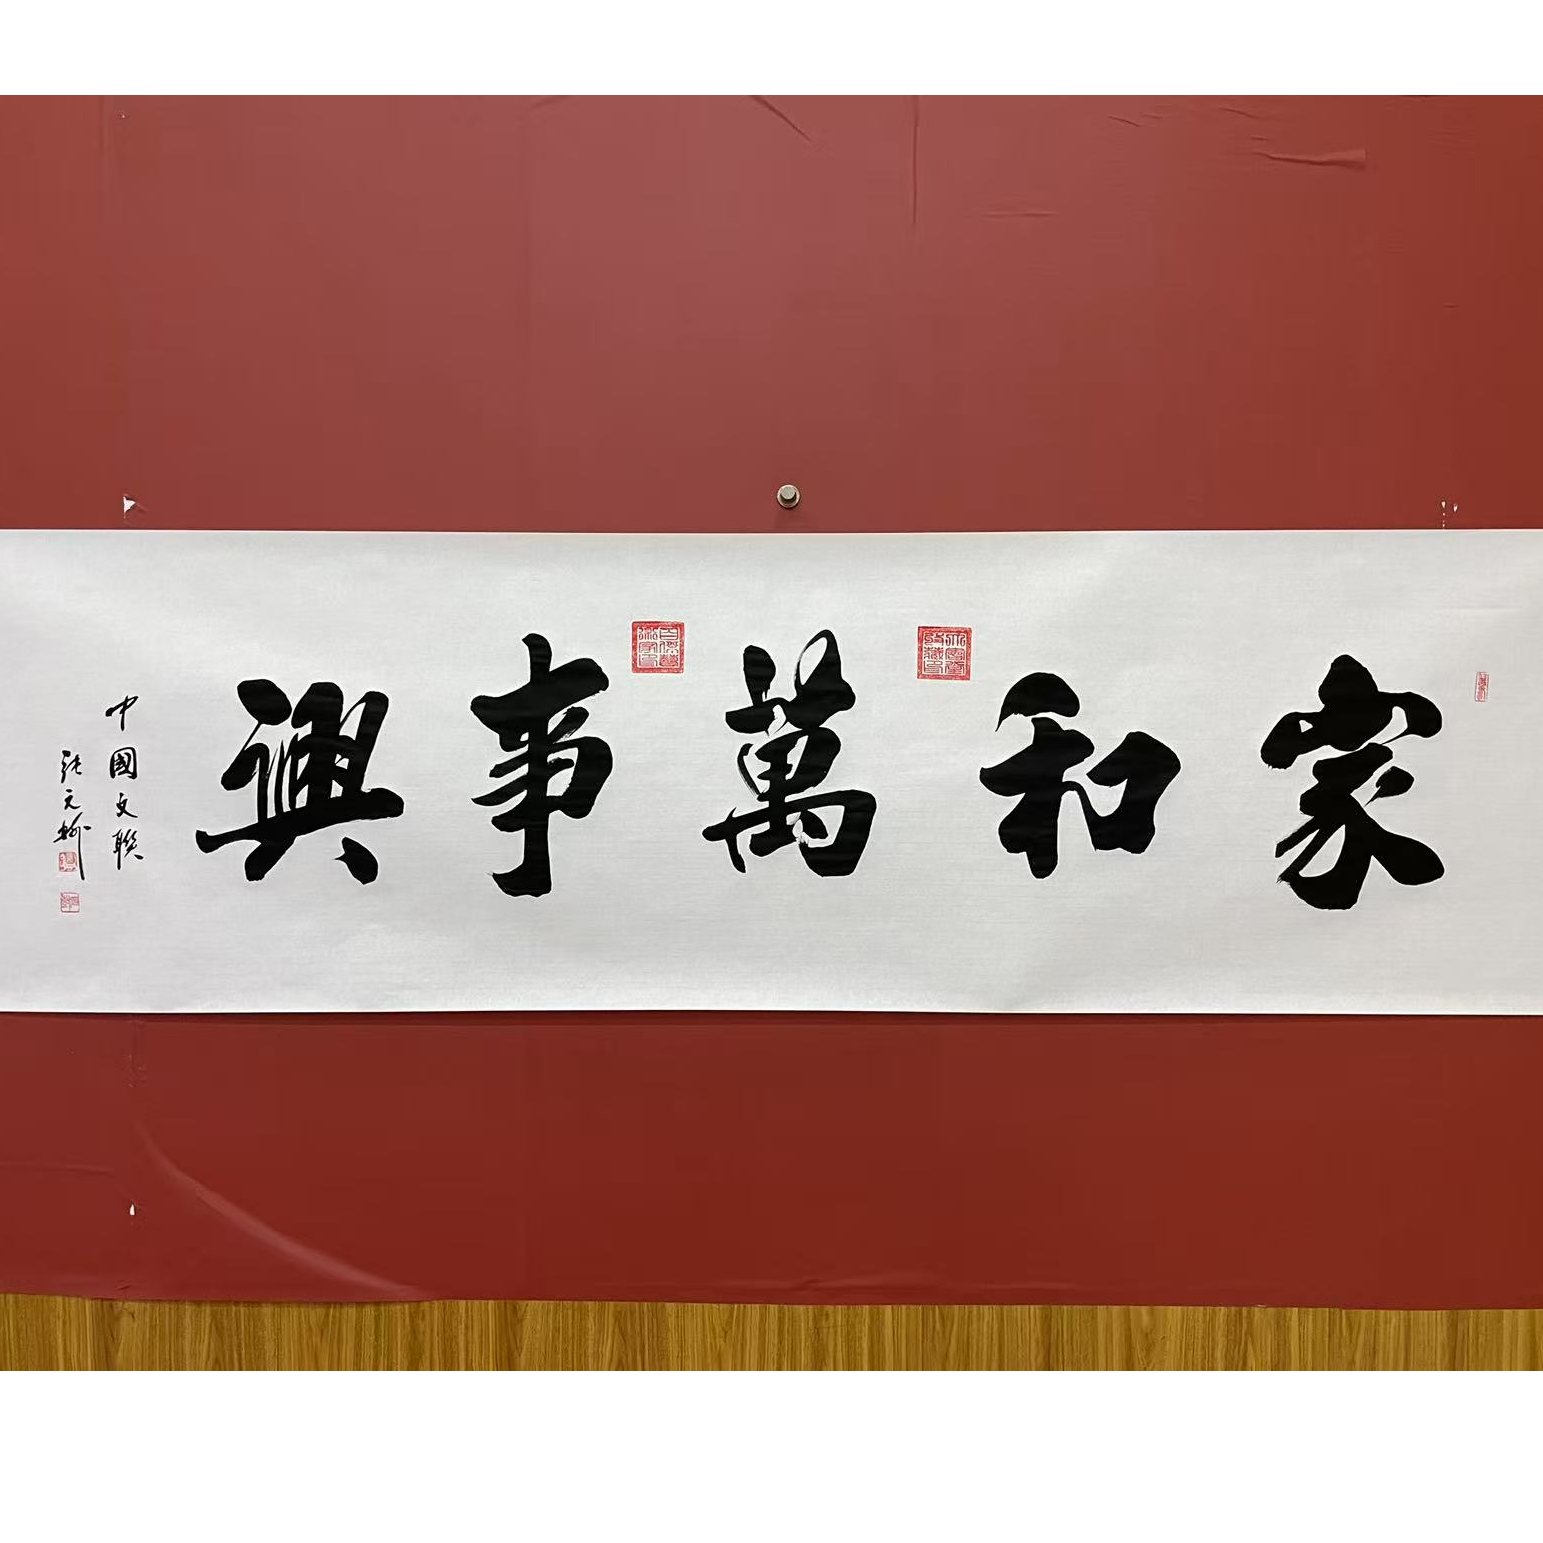 家和萬事興
中國文聯
張元